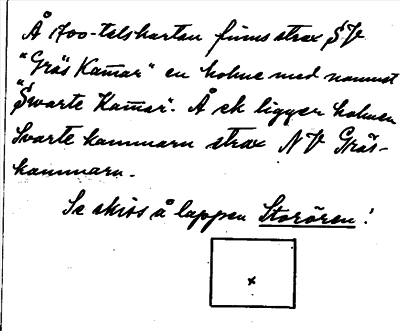 Å 1700-talskartan finns strax SV
"Gräs Kam̄ar" en holme med namnet
"Swarte Kam̄ar". Å ek ligger holmen
Svarte kammarn strax NV Gräs-
kammarn.
Se skiss å lappen Storören!
x